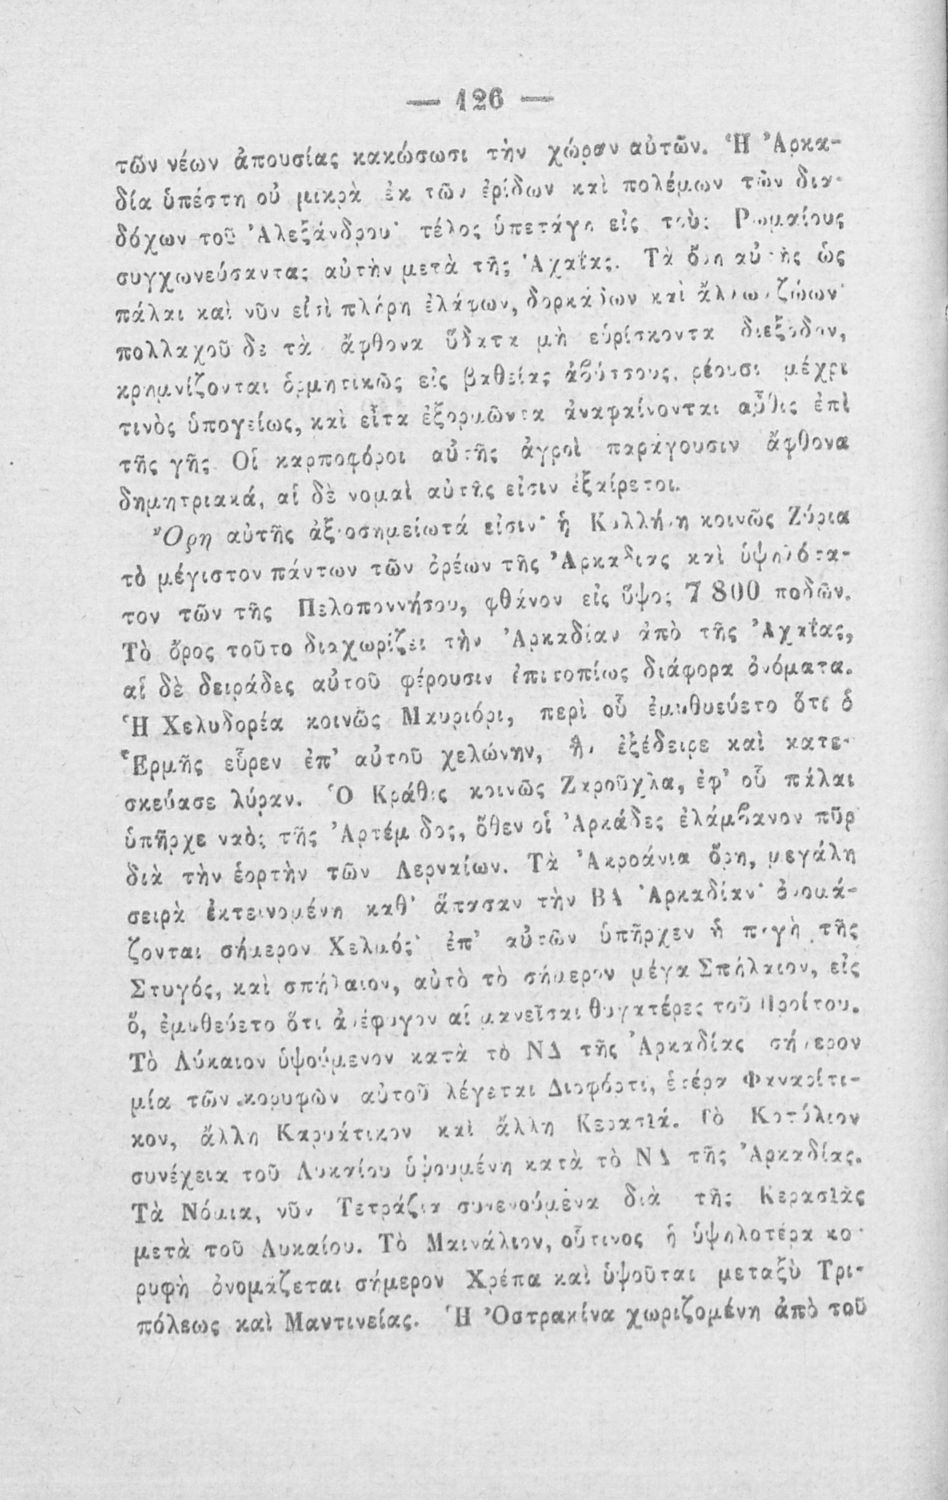 — 126 —
τῶν νέων ἀπουσίας κακώσωσι τὴν χώραν αὐτῶν. Ἡ Ἀρκα-
δία ὑπέστη οὐ μικρὰ ἐκ τῶν ἐρίδων καὶ πολέμων τῶν δια-
δόχων τοῦ Ἀλεξάνδρου· τέλος ὑπετάγη εἰς τοὺς Ῥωμαίους
συγχωνεύσαντας αὐτὴν μετὰ τῆς Ἀχαΐας. Τὰ ὄρη αὐτῆς ὡς
πάλαι καὶ νῦν εἰσὶ πλήρη ἐλάφων, δορκάδων καὶ ἄλλων ζώων·
πολλαχοῦ δὲ τὰ ἄφθονα ὕδατα μὴ εὑρίσκοντα διέξοδον,
κρημνίζονται ὁρμητικῶς εἰς βαθείας ἀβύσσους, ρέουσι μέχρι
τινὸς ὑπογείως, καὶ εἶτα ἐξορμῶντα ἀναφαίνονται αὖθις ἐπὶ
τῆς γῆς. Οἱ καρποφόροι αὐτῆς ἀγροὶ παράγουσιν ἄφθονα
δημητριακά, αἱ δὲ νομαὶ αὐτῆς εἰσιν ἐξαίρετοι.
Ὄρη αὐτῆς ἀξιοσημείωτά εἰσιν· ἡ Κυλλήνη κοινῶς Ζύρια
τὸ μέγιστον πάντων τῶν ὀρέων τῆς Ἀρκαδίας καὶ ὑψηλότα-
τον τῶν τῆς Πελοποννήσου, φθάνον εἰς ὕψος 7 800 ποδῶν.
Τὸ ὄρος τοῦτο διαχωρίζει τὴν Ἀρκαδίαν ἀπὸ τῆς Ἀχαΐας,
αἱ δὲ δειράδες αὐτοῦ φέρουσιν ἐπιτοπίως διάφορα ὀνόματα.
Ἡ Χελυδορέα κοινῶς Μαυριόρι, περὶ οὗ ἐμυθυεύετο ὅτι ὁ
Ἑρμῆς εὗρεν ἐπ' αὐτοῦ χελώνην, ἣν ἐξέδειρε καὶ κατε-
σκεύασε λύραν. Ὁ Κράθις κοινῶς Ζαροῦχλα, ἐφ' οὗ πάλαι
ὑπῆρχε ναὸς τῆς Ἀρτέμιδος, ὅθεν οἱ Ἀρκάδες ἐλάμβανον πῦρ
διὰ τὴν ἑορτὴν τῶν Λερναίων. Τὰ Ἀκροάνια ὄρη, μεγάλη
σειρὰ ἐκτεινομένη καθ' ἅπασαν τὴν ΒΑ Ἀρκαδίαν· ὀνομά-
ζονται σήμερον Χελμός· ἐπ' αὐτῶν ὑπῆρχεν ἡ πηγὴ τῆς
Στυγός, καὶ σπήλαιον, αὐτὸ τὸ σήμερον μέγα Σπήλαιον, εἰς
ὅ, ἐμυθεύετο ὅτι ἀνέφυγον αἱ μανεῖσαι θυγατέρες τοῦ Προίτου.
Τὸ Λύκαιον ὑψούμενον κατὰ τὸ ΝΔ τῆς Ἀρκαδίας σήμερον
μία τῶν κορυφῶν αὐτοῦ λέγεται Διοφόρτι, ἑτέρα Φαναρίτι-
κον, ἄλλη Καρυάτικον καὶ ἄλλη Κερασιά. Τὸ Κοτύλιον
συνέχεια τοῦ Λυκαίου ὑψουμένη κατὰ τὸ ΝΔ τῆς Ἀρκαδίας.
Τὰ Νόμια, νῦν Τετράζια συνενούμενα διὰ τῆς Κερασιᾶς
μετὰ τοῦ Λυκαίου. Τὸ Μαινάλιον, οὗτινος ἡ ὑψηλοτέρα κο-
ρυφὴ ὀνομάζεται σήμερον Χρέπα καὶ ὑψοῦται μεταξὺ Τρι-
πόλεως καὶ Μαντινείας. Ἡ Ὀστρακίνα χωριζομένη ἀπὸ τοῦ